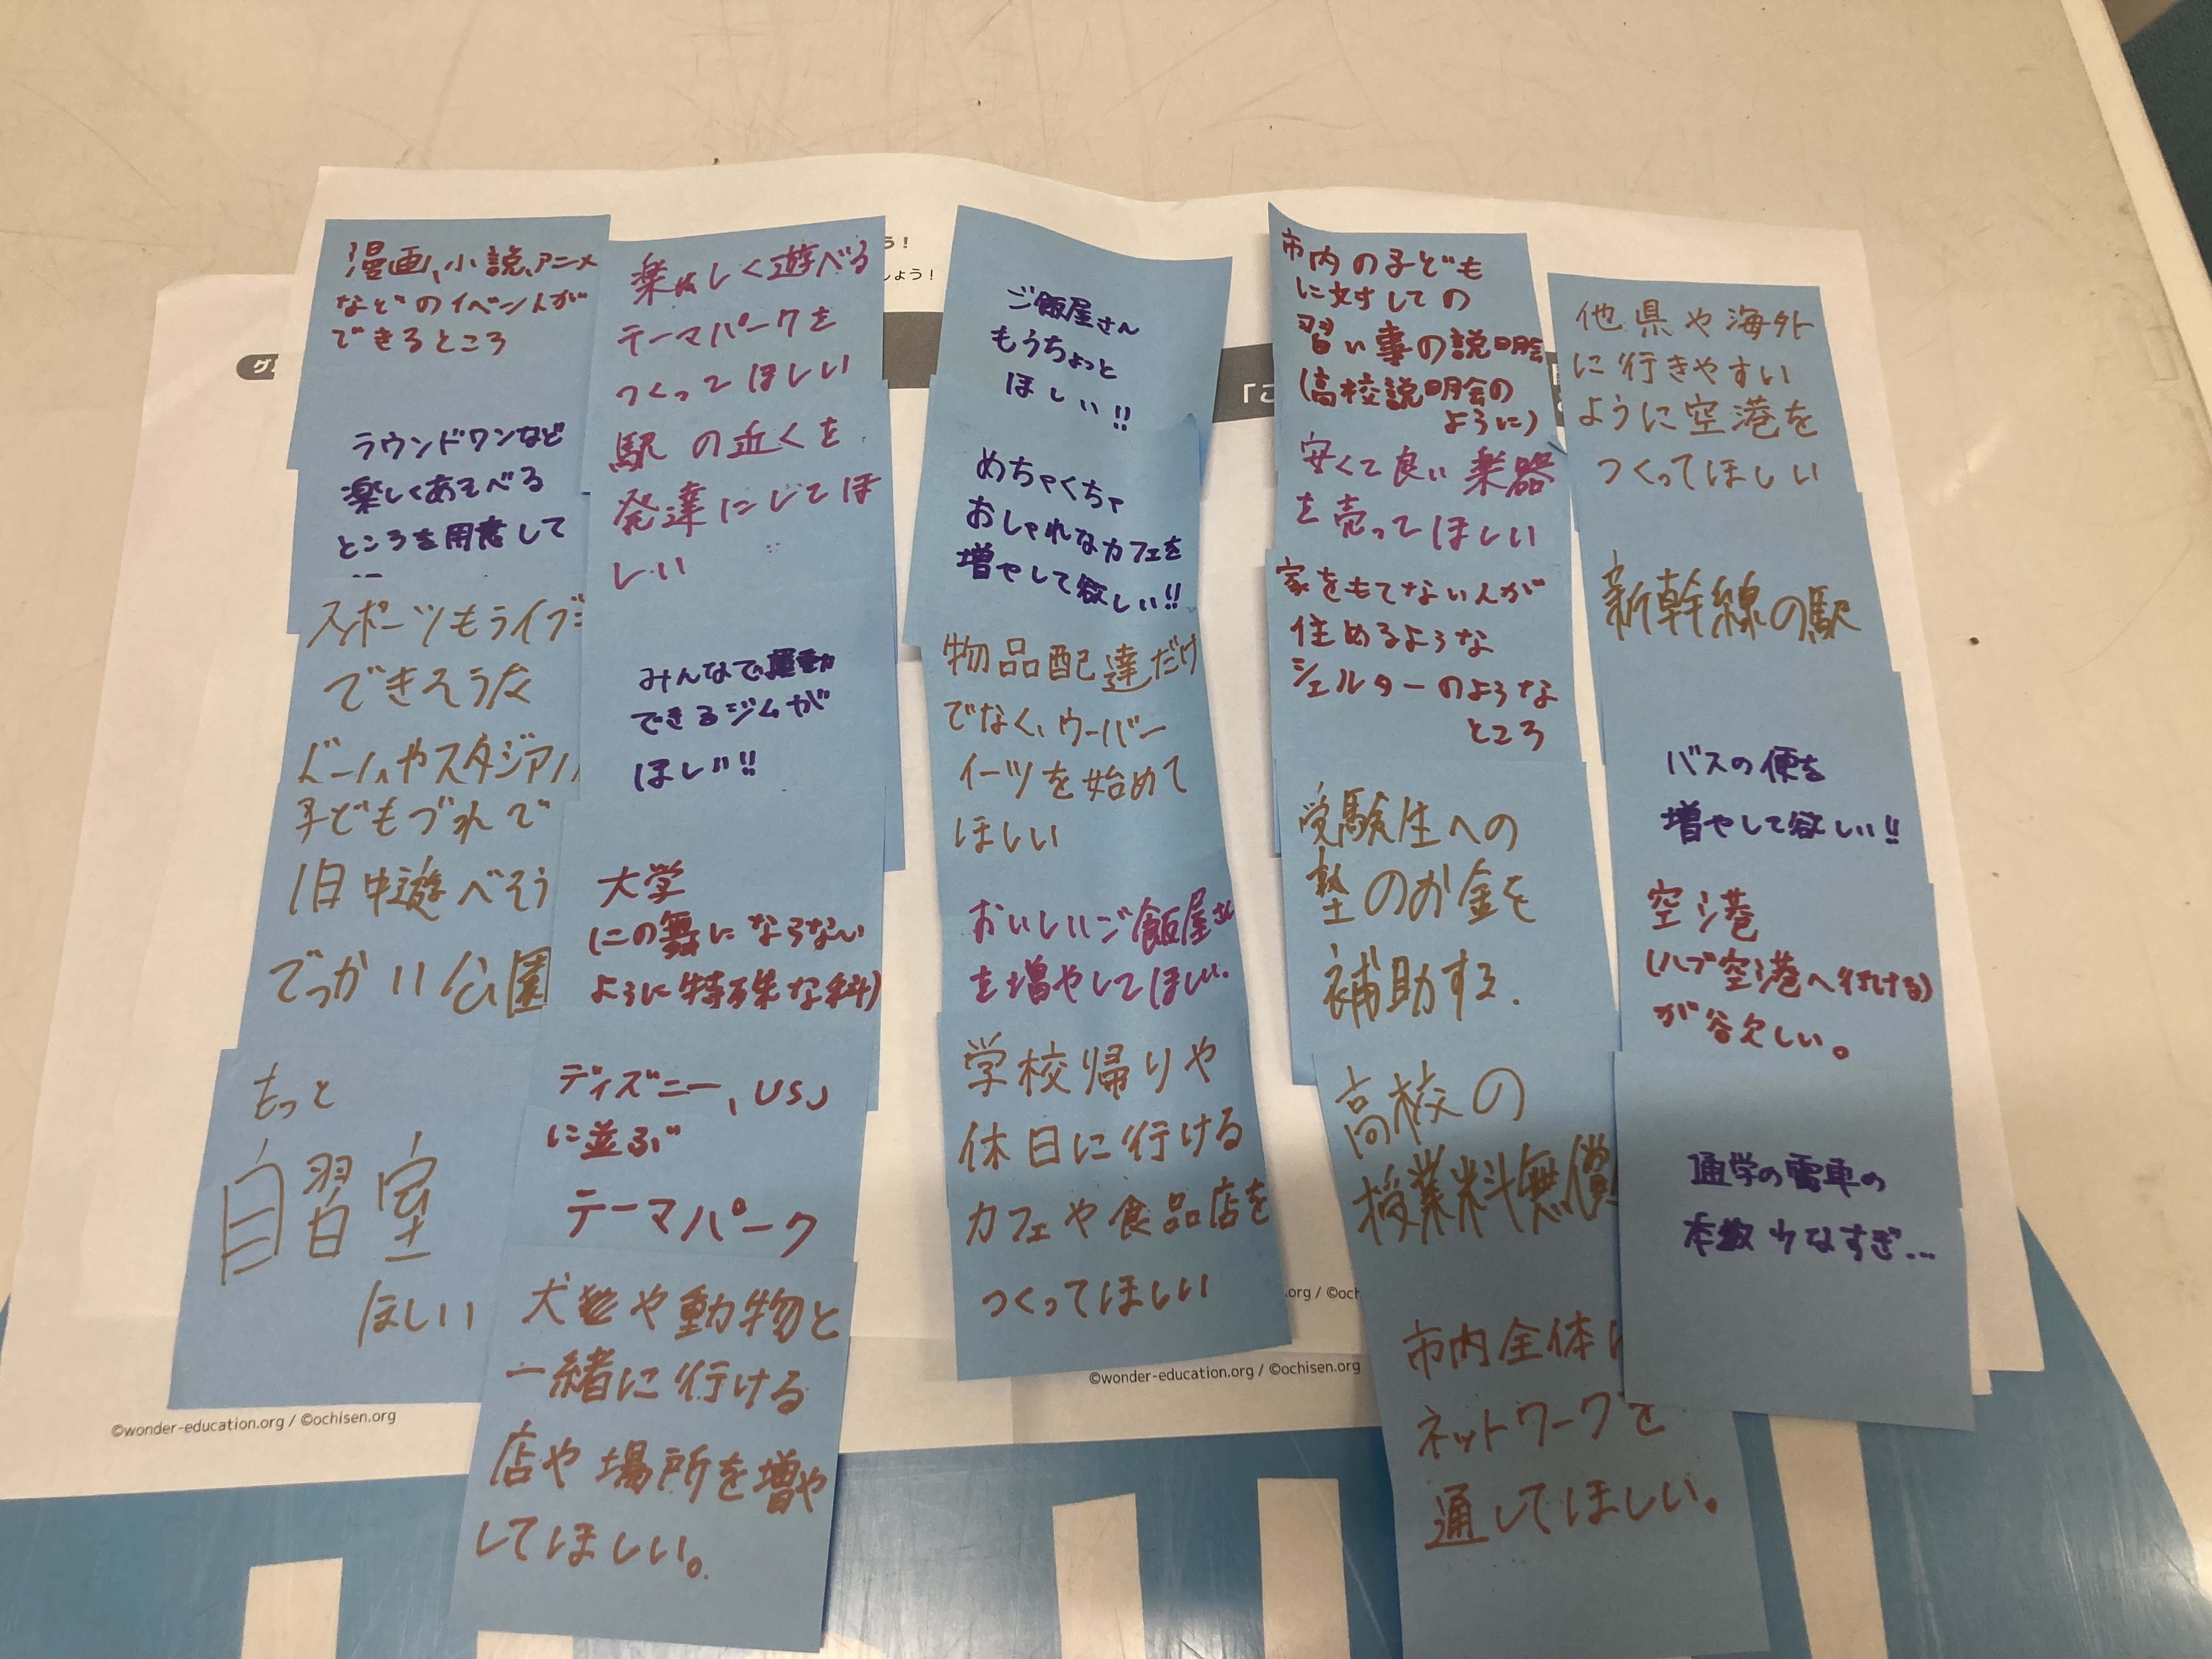 う！
しょう！
グ
「こ
漫画、小説、アニメ
などのイベントが
できるところ
ラウンドワンなど
楽しくあそべる
ところを用意して
スポーツもライブも
できそうな
ドームやスタジアム
子どもづれで
1日中遊べそう
でっかい公園
もっと
自習室
ほしい
楽しく遊べる
テーマパークを
つくってほしい
駅の近くを
発達にしてほ
しい
みんなで運動
できるジムが
ほしい!!
大学
(二の舞にならない
ように特殊な科)
ディズニー、USJ
に並ぶ
テーマパーク
犬や動物と
一緒に行ける
店や場所を増や
してほしい。
ご飯屋さん
もうちょっと
ほしい!!
めちゃくちゃ
おしゃれなカフェを
増やして欲しい!!
物品配達だけ
でなく、ウーバー
イーツを始めて
ほしい
おいしいご飯屋さん
を増やしてほしい。
学校帰りや
休日に行ける
カフェや食品店を
つくってほしい
市内の子ども
に対しての
習い事の説明会
(高校説明会の
ように)
安くて良い楽器
を売ってほしい
家をもてない人が
住めるような
シェルターのような
ところ
受験生への
塾のお金を
補助する.
高校の
授業料無償
市内全体に
ネットワークを
通してほしい。
他県や海外
に行きやすい
ように空港を
つくってほしい
新幹線の駅
バスの便を
増やして欲しい!!
空港
(ハブ空港へ行ける)
が欲しい。
通学の電車の
本数少なすぎ…
©wonder-education.org / ©ochisen.org
©wonder-education.org / ©ochisen.org
.org / ©och